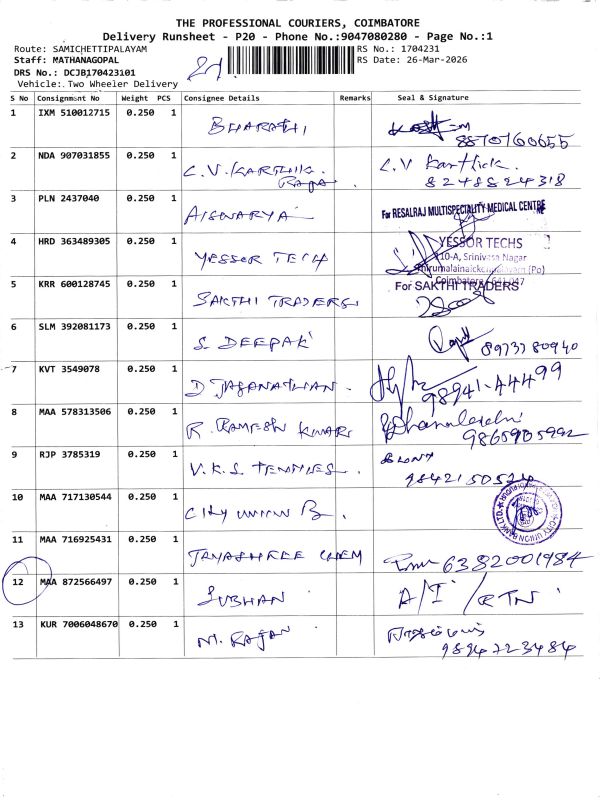 THE PROFESSIONAL COURIERS, COIMBATORE
Delivery Runsheet - P20 - Phone No.:9047080280 - Page No.:1
Route: SAMICHETTIPALAYAM RS No.: 1704231
Staff: MATHANAGOPAL RS Date: 26-Mar-2026
DRS No.: DCJB170423101
Vehicle: Two Wheeler Delivery
S No Consignment No Weight PCS Consignee Details Remarks Seal & Signature
1 IXM 510012715 0.250 1 BHARATHI
8870760655
2 NDA 907031855 0.250 1 C.V. KARTHIK C.V Karthick.
Raja 8248824318
3 PLN 2437040 0.250 1 AISWARYA For RESALRAJ MULTISPECIALITY MEDICAL CENTRE
4 HRD 363489305 0.250 1 YESSOR TECH YESSOR TECHS
110-A, Srinivasa Nagar
Thirumalainaickenpalayam (Po)
Coimbatore - 641 047
5 KRR 600128745 0.250 1 SAKTHI TRADERS For SAKTHI TRADERS
6 SLM 392081173 0.250 1 S. DEEPAK 8973780940
7 KVT 3549078 0.250 1 D JAGANATHAN. 98941-44499
8 MAA 578313506 0.250 1 R. RAMESH KUMAR Dhanalakshmi
9865905992
9 RJP 3785319 0.250 1 V.K.S. TENNIES.
10 MAA 717130544 0.250 1 CITY UNION B. CITY UNION BANK LTD.
11 MAA 716925431 0.250 1 JAYASHREE CHEM 6382001984
12 MAA 872566497 0.250 1 SUBHAN A/I / RTN
13 KUR 7006048670 0.250 1 M. RAJAN
9894723484